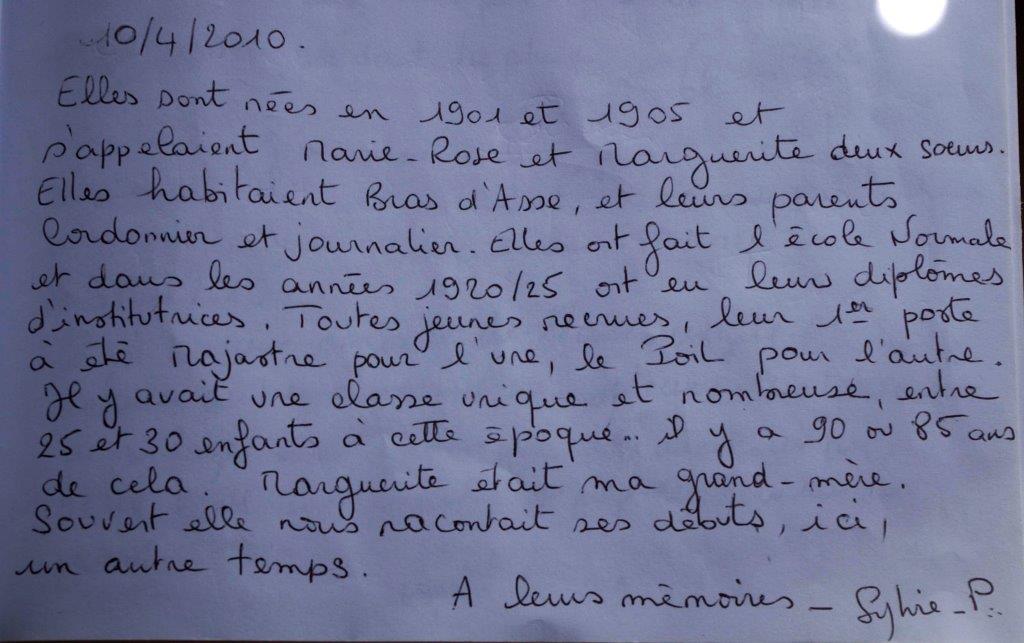 10/4/2010.
Elles sont nées en 1901 et 1905 et
s'appelaient Marie-Rose et Marguerite deux soeurs.
Elles habitaient Bras d'Asse, et leurs parents
Cordonnier et journalier. Elles ont fait l'école Normale
et dans les années 1920/25 ont eu leurs diplômes
d'institutrices. Toutes jeunes recrues, leur 1er poste
à été Majastre pour l'une, le Poil pour l'autre.
Il y avait une classe unique et nombreuse, entre
25 et 30 enfants à cette époque... il y a 90 ou 85 ans
de cela. Marguerite était ma grand-mère.
Souvent elle nous racontait ses débuts, ici,
un autre temps.
A leurs mémoires - Sylvie-P.